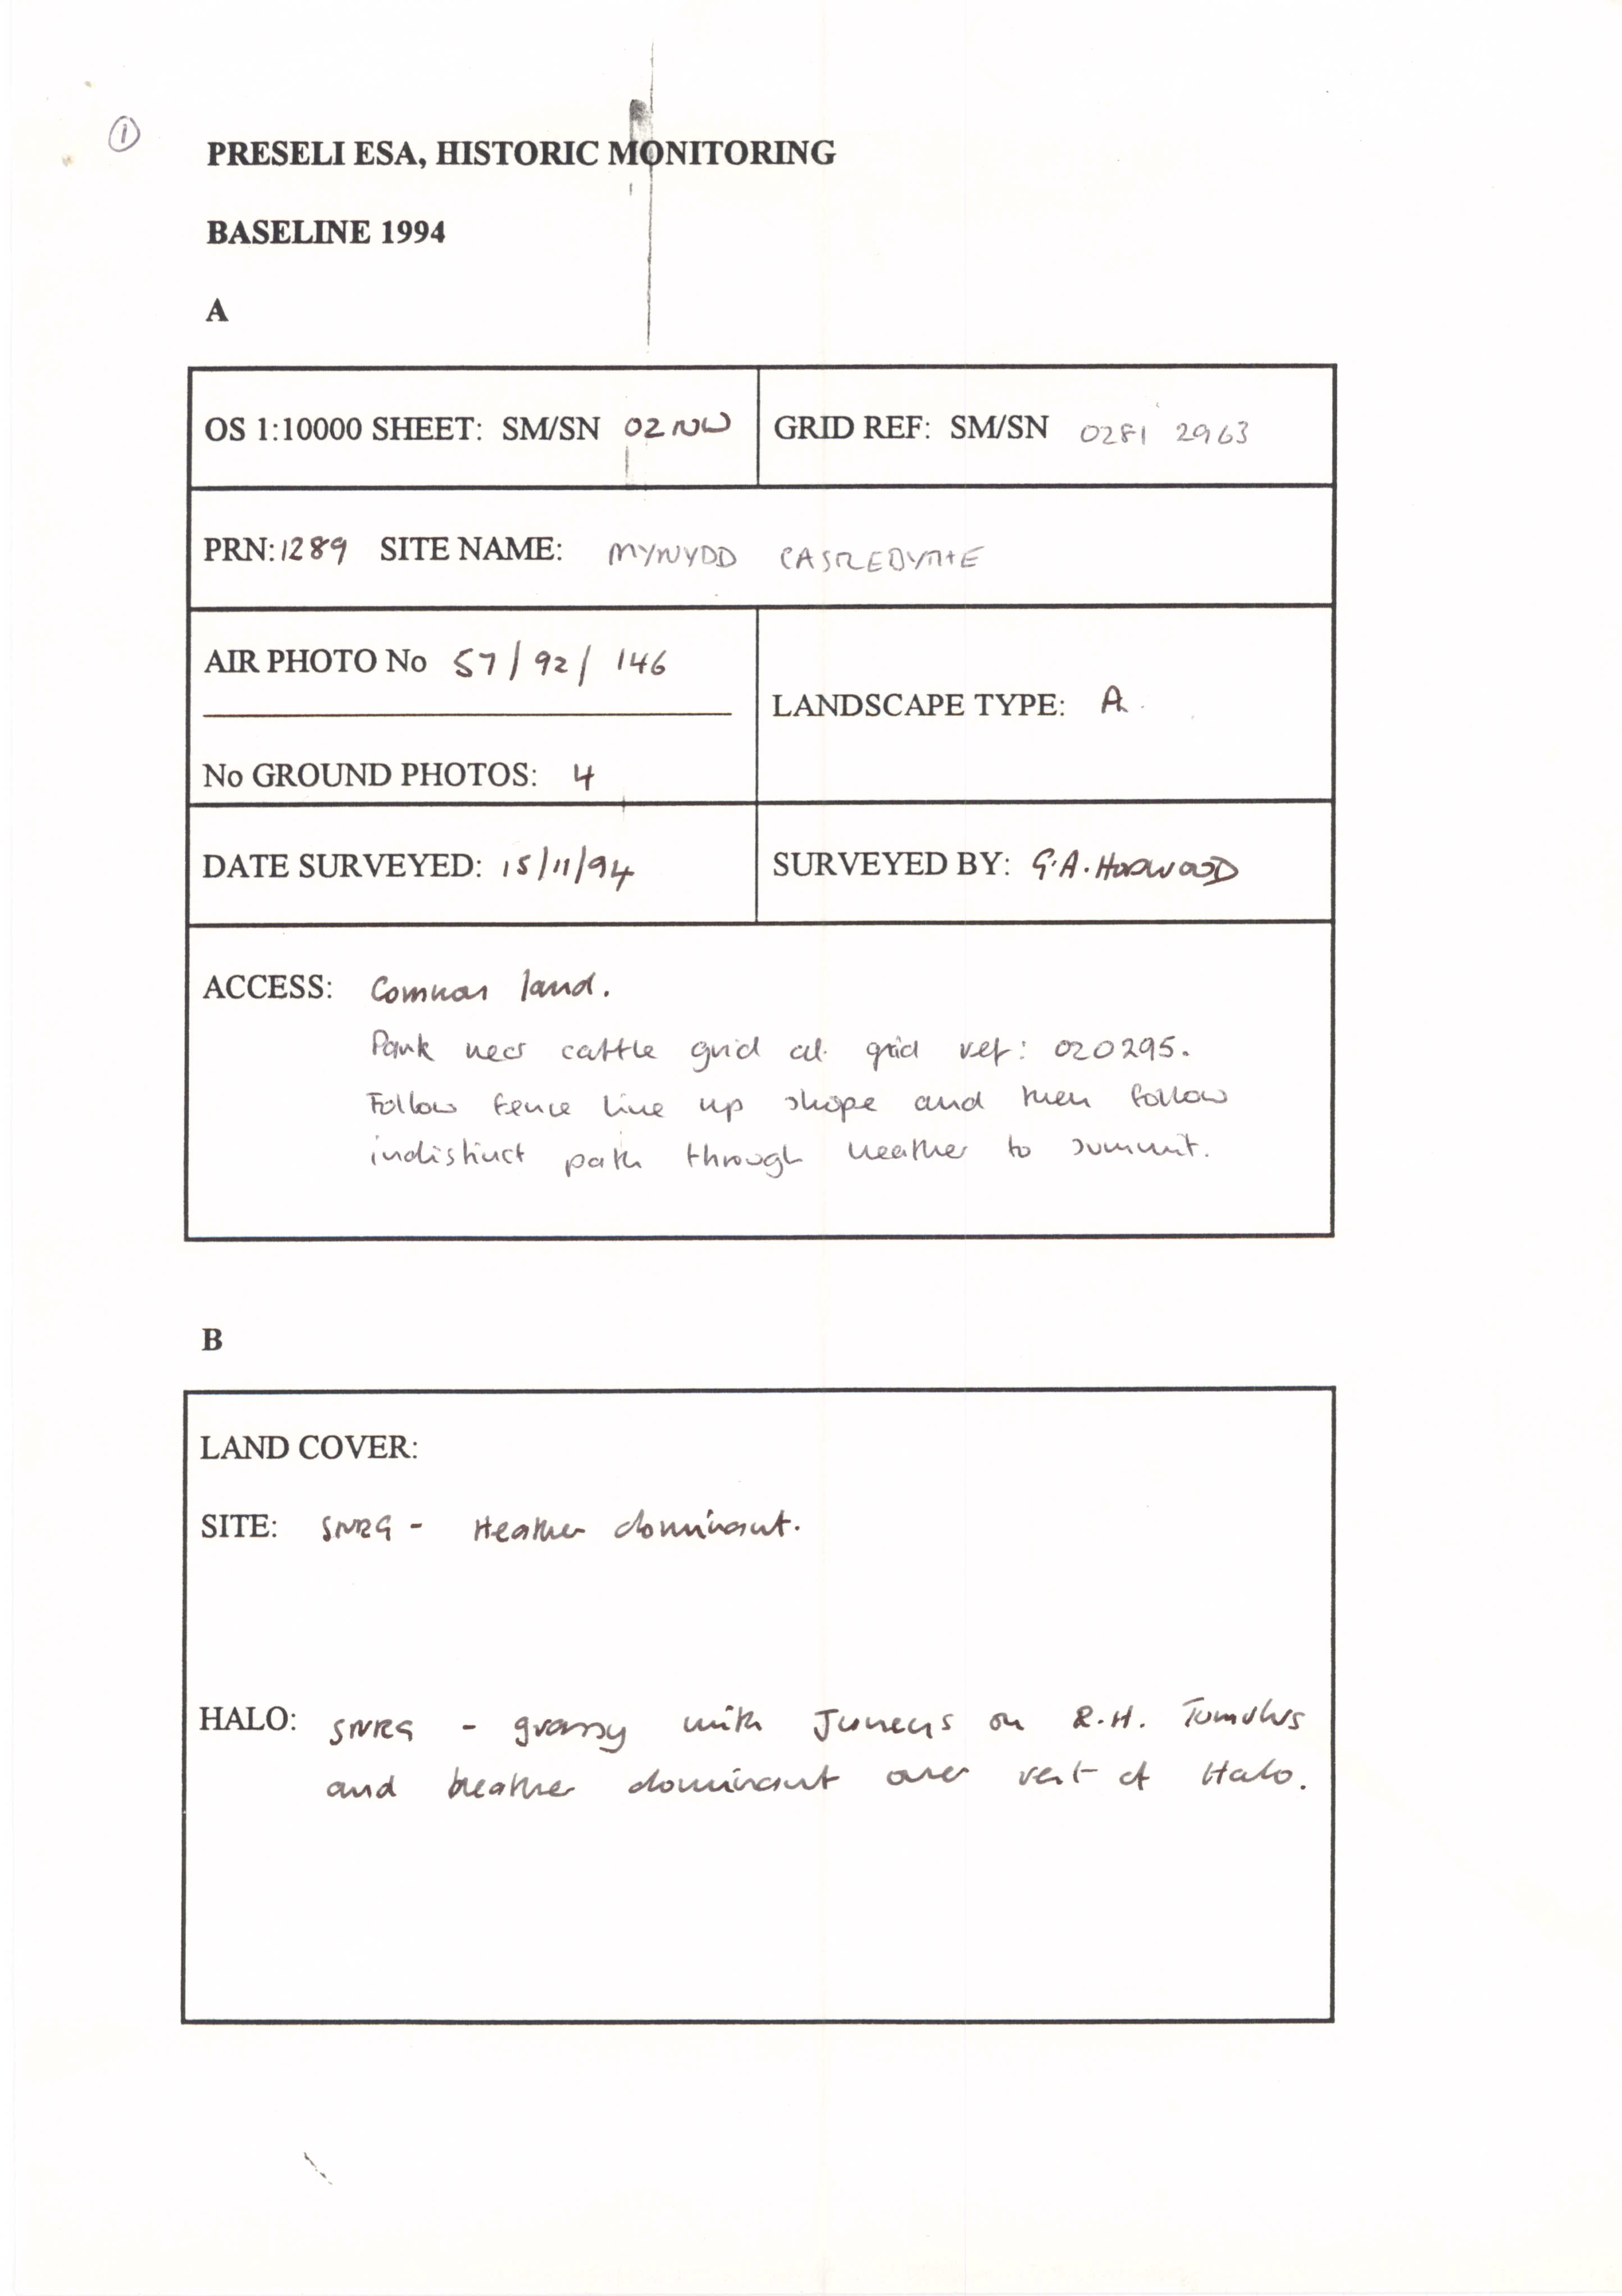 ①
PRESELI ESA, HISTORIC MONITORING
BASELINE 1994
A
OS 1:10000 SHEET: SM/SN 02NW
GRID REF: SM/SN 0281 2963
PRN: 1289 SITE NAME: MYNYDD CASTLEBYTHE
AIR PHOTO No 57/92/146
LANDSCAPE TYPE: A.
No GROUND PHOTOS: 4
DATE SURVEYED: 15/11/94
SURVEYED BY: G.A.
ACCESS: Common land.
Park near cattle grid at grid ref: 020295.
Follow fence line up slope and then follow
indistinct path through heather to summit.
B
LAND COVER:
SITE: SNRG - Heather dominant.
HALO: SNRG - grassy with Juncus on R.H. Tumulus
and heather dominant over rest of Halo.